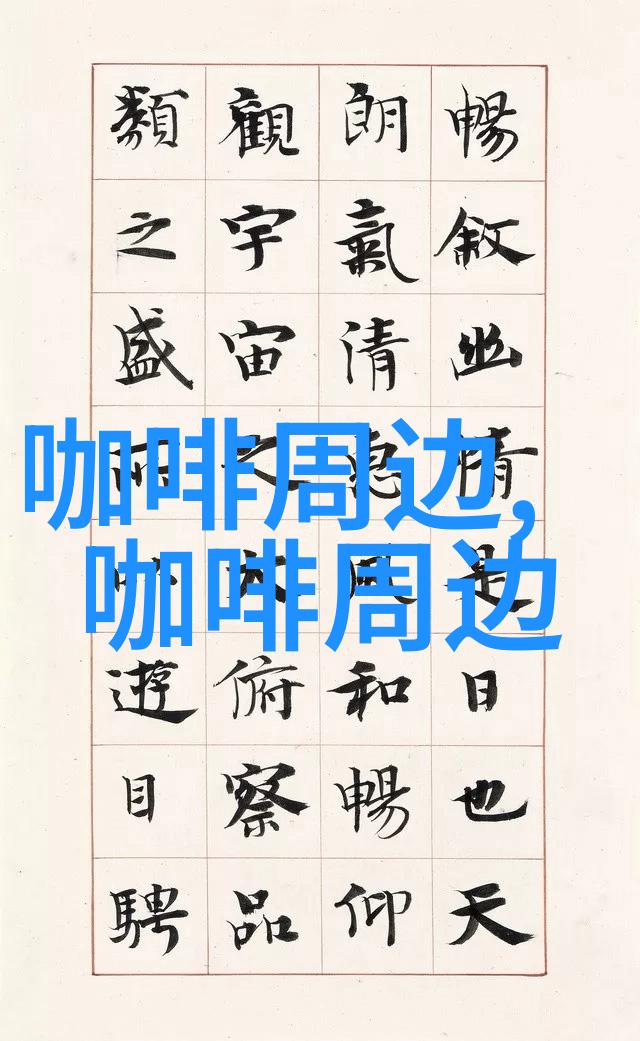 暢敘幽情是日也天
朗氣清惠風和暢仰
觀宇宙之大俯察品
類之盛所以遊目騁
咖啡周边,
咖啡周边